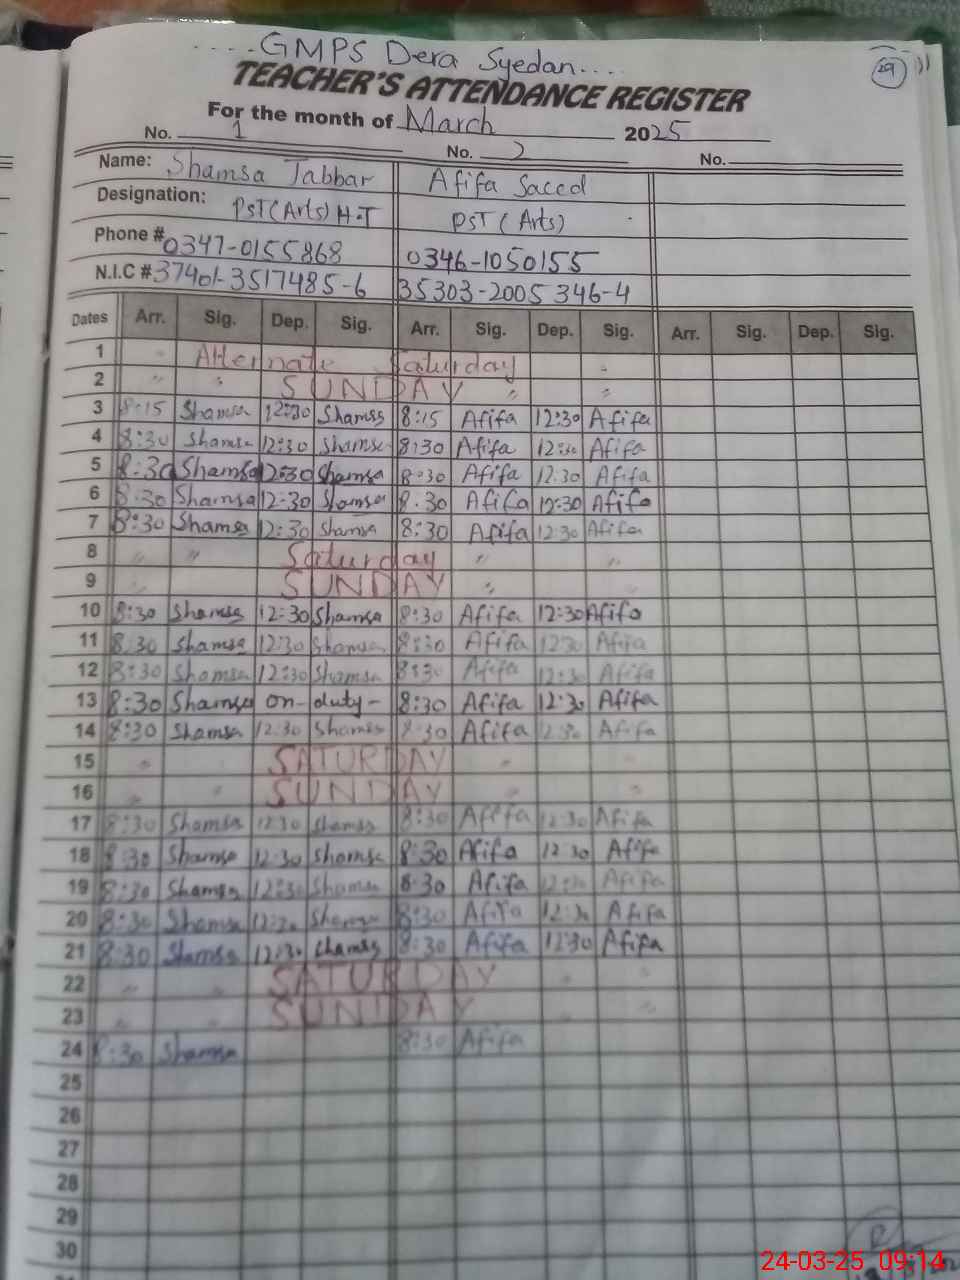 ....GMPS Dera Syedan....
29
TEACHER'S ATTENDANCE REGISTER
For the month of March 2025
No. 1 No. 2 No.
Name: Shamsa Jabbar Afifa Saeed
Designation: PST(Arts) H.T PST (Arts)
Phone # 0347-0155868 0346-1050155
N.I.C # 37401-3517485-6 35303-2005346-4
Dates Arr. Sig. Dep. Sig. Arr. Sig. Dep. Sig. Arr. Sig. Dep. Sig.
1 " Alternate Saturday "
2 " " SUNDAY " "
3 8:15 Shamsa 12:30 Shamsa 8:15 Afifa 12:30 Afifa
4 8:30 Shamsa 12:30 Shamsa 8:30 Afifa 12:30 Afifa
5 8:30 Shamsa 12:30 Shamsa 8:30 Afifa 12:30 Afifa
6 8:30 Shamsa 12:30 Shamsa 8:30 Afifa 12:30 Afifa
7 8:30 Shamsa 12:30 Shamsa 8:30 Afifa 12:30 Afifa
8 " " Saturday " "
9 " SUNDAY "
10 8:30 Shamsa 12:30 Shamsa 8:30 Afifa 12:30 Afifa
11 8:30 Shamsa 12:30 Shamsa 8:30 Afifa 12:30 Afifa
12 8:30 Shamsa 12:30 Shamsa 8:30 Afifa 12:30 Afifa
13 8:30 Shamsa on-duty- 8:30 Afifa 12:30 Afifa
14 8:30 Shamsa 12:30 Shamsa 8:30 Afifa 12:30 Afifa
15 " SATURDAY " "
16 " " SUNDAY " "
17 8:30 Shamsa 12:30 Shamsa 8:30 Afifa 12:30 Afifa
18 8:30 Shamsa 12:30 Shamsa 8:30 Afifa 12:30 Afifa
19 8:30 Shamsa 12:30 Shamsa 8:30 Afifa 12:30 Afifa
20 8:30 Shamsa 12:30 Shamsa 8:30 Afifa 12:30 Afifa
21 8:30 Shamsa 12:30 Shamsa 8:30 Afifa 12:30 Afifa
22 " " SATURDAY " "
23 " " SUNDAY " "
24 8:30 Shamsa 8:30 Afifa
25
26
27
28
29
30
24-03-25 09:14